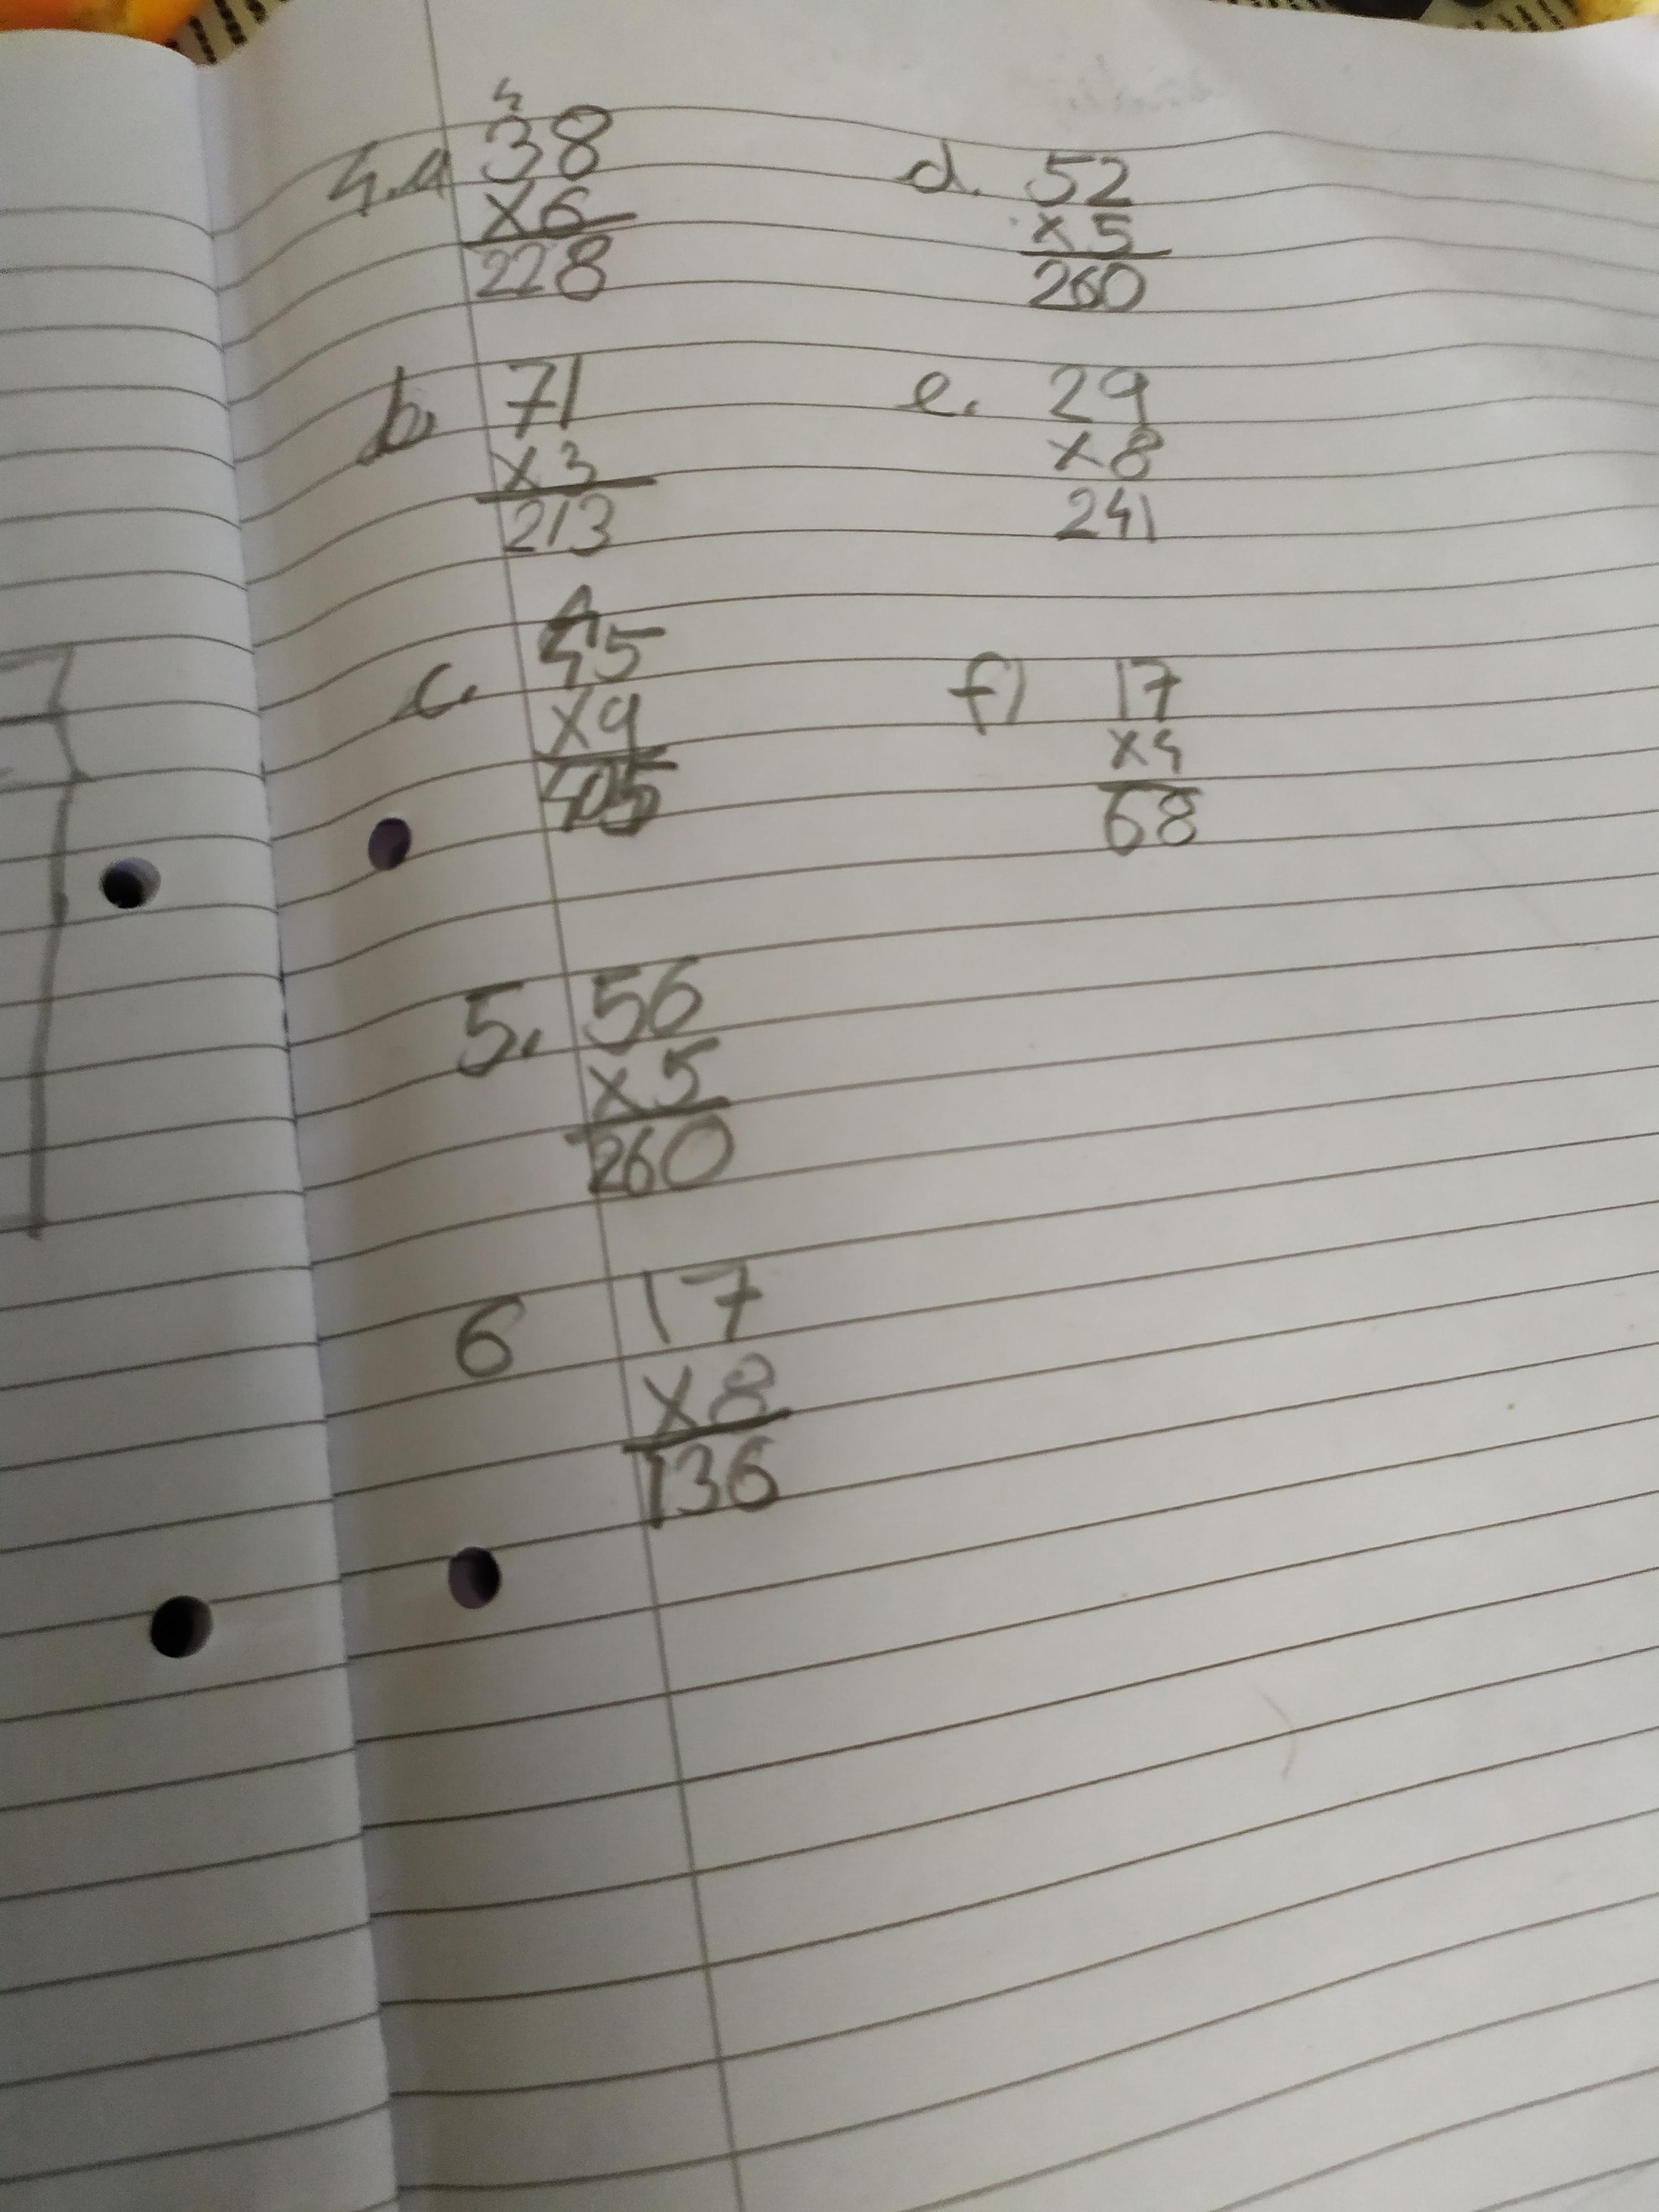 4
4.a 38
x6
228
b. 71
x3
213
4
c. 45
x9
405
d. 52
x5
260
e. 29
x8
241
f) 17
x4
68
5. 56
x5
260
6 17
x8
136